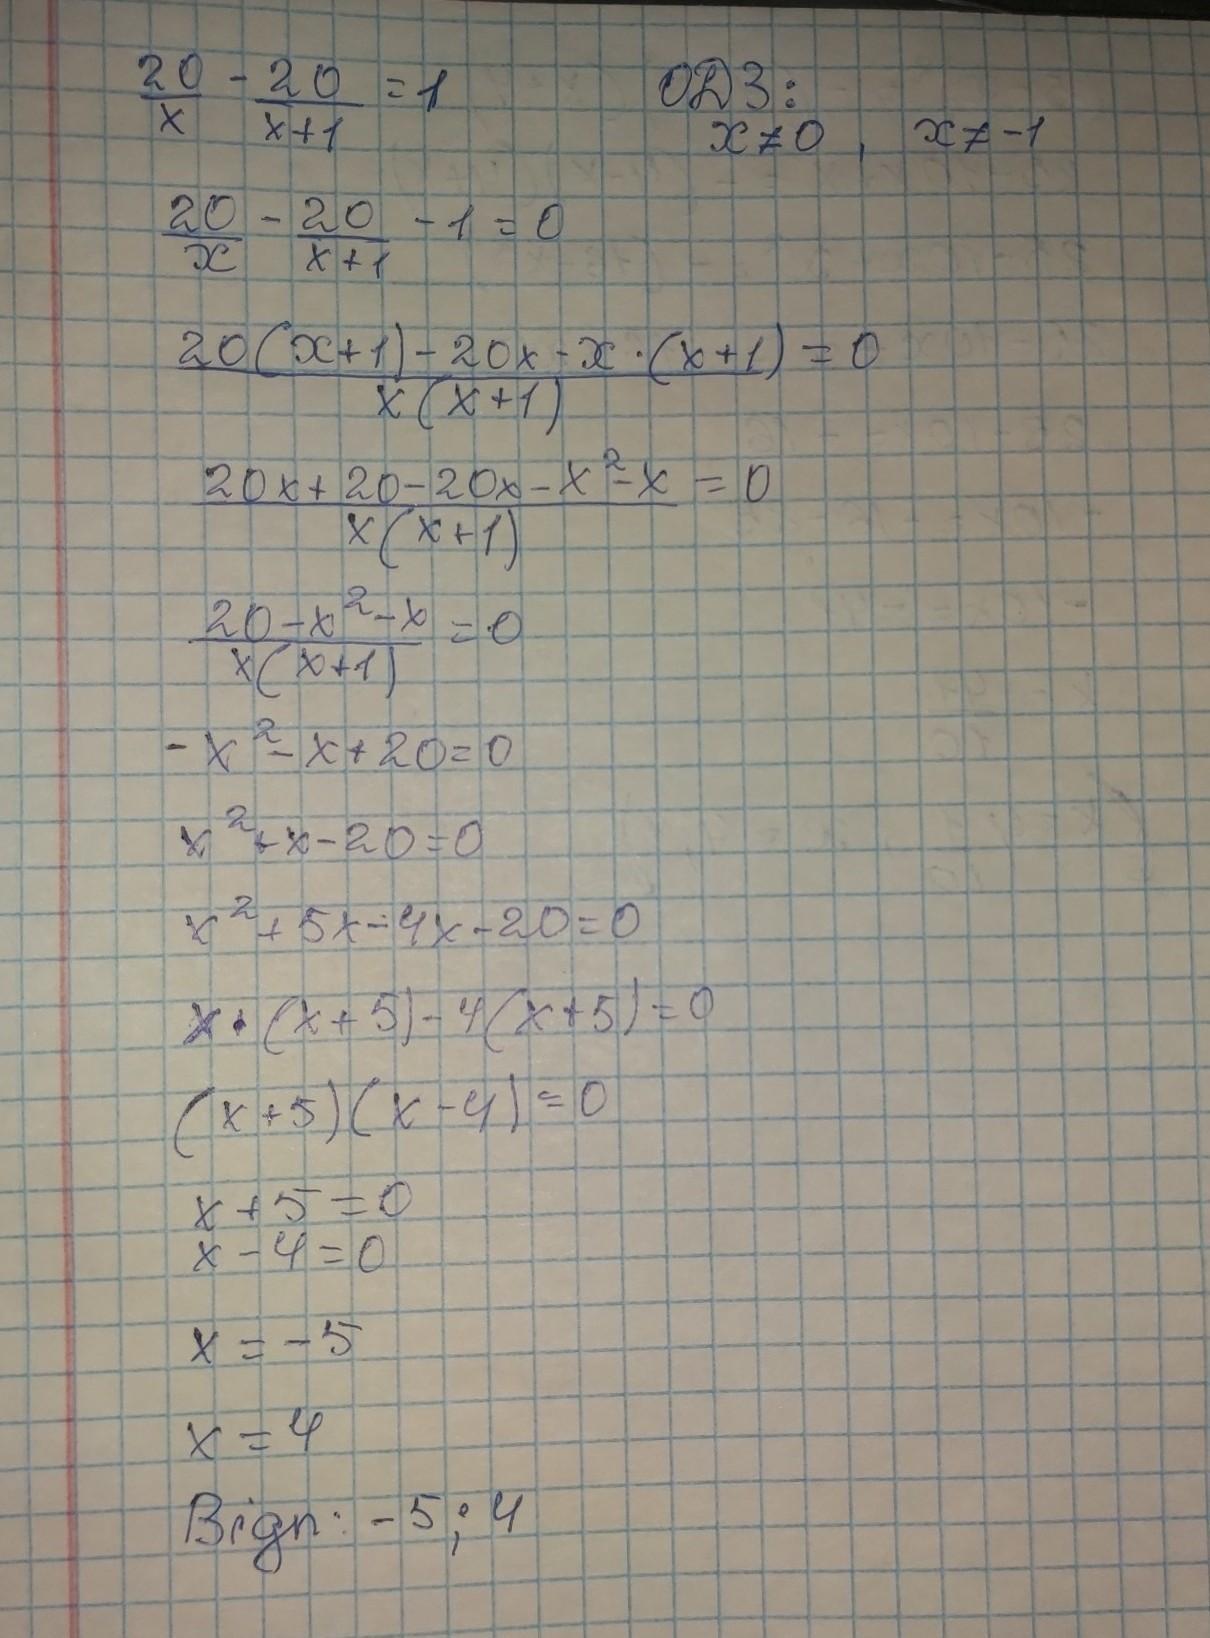 20/x - 20/(x+1) = 1 ОДЗ:
x≠0, x≠-1
20/x - 20/(x+1) - 1 = 0
(20(x+1) - 20x - x·(x+1))/(x(x+1)) = 0
(20x+20-20x-x²-x)/(x(x+1)) = 0
(20-x²-x)/(x(x+1)) = 0
-x²-x+20=0
x²+x-20=0
x²+5x-4x-20=0
x·(x+5)-4(x+5)=0
(x+5)(x-4)=0
x+5=0
x-4=0
x=-5
x=4
Відп: -5; 4